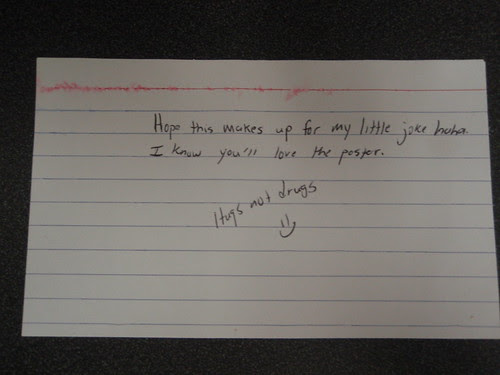 Hope this makes up for my little joke haha.
I know you'll love the poster.
Hugs not drugs